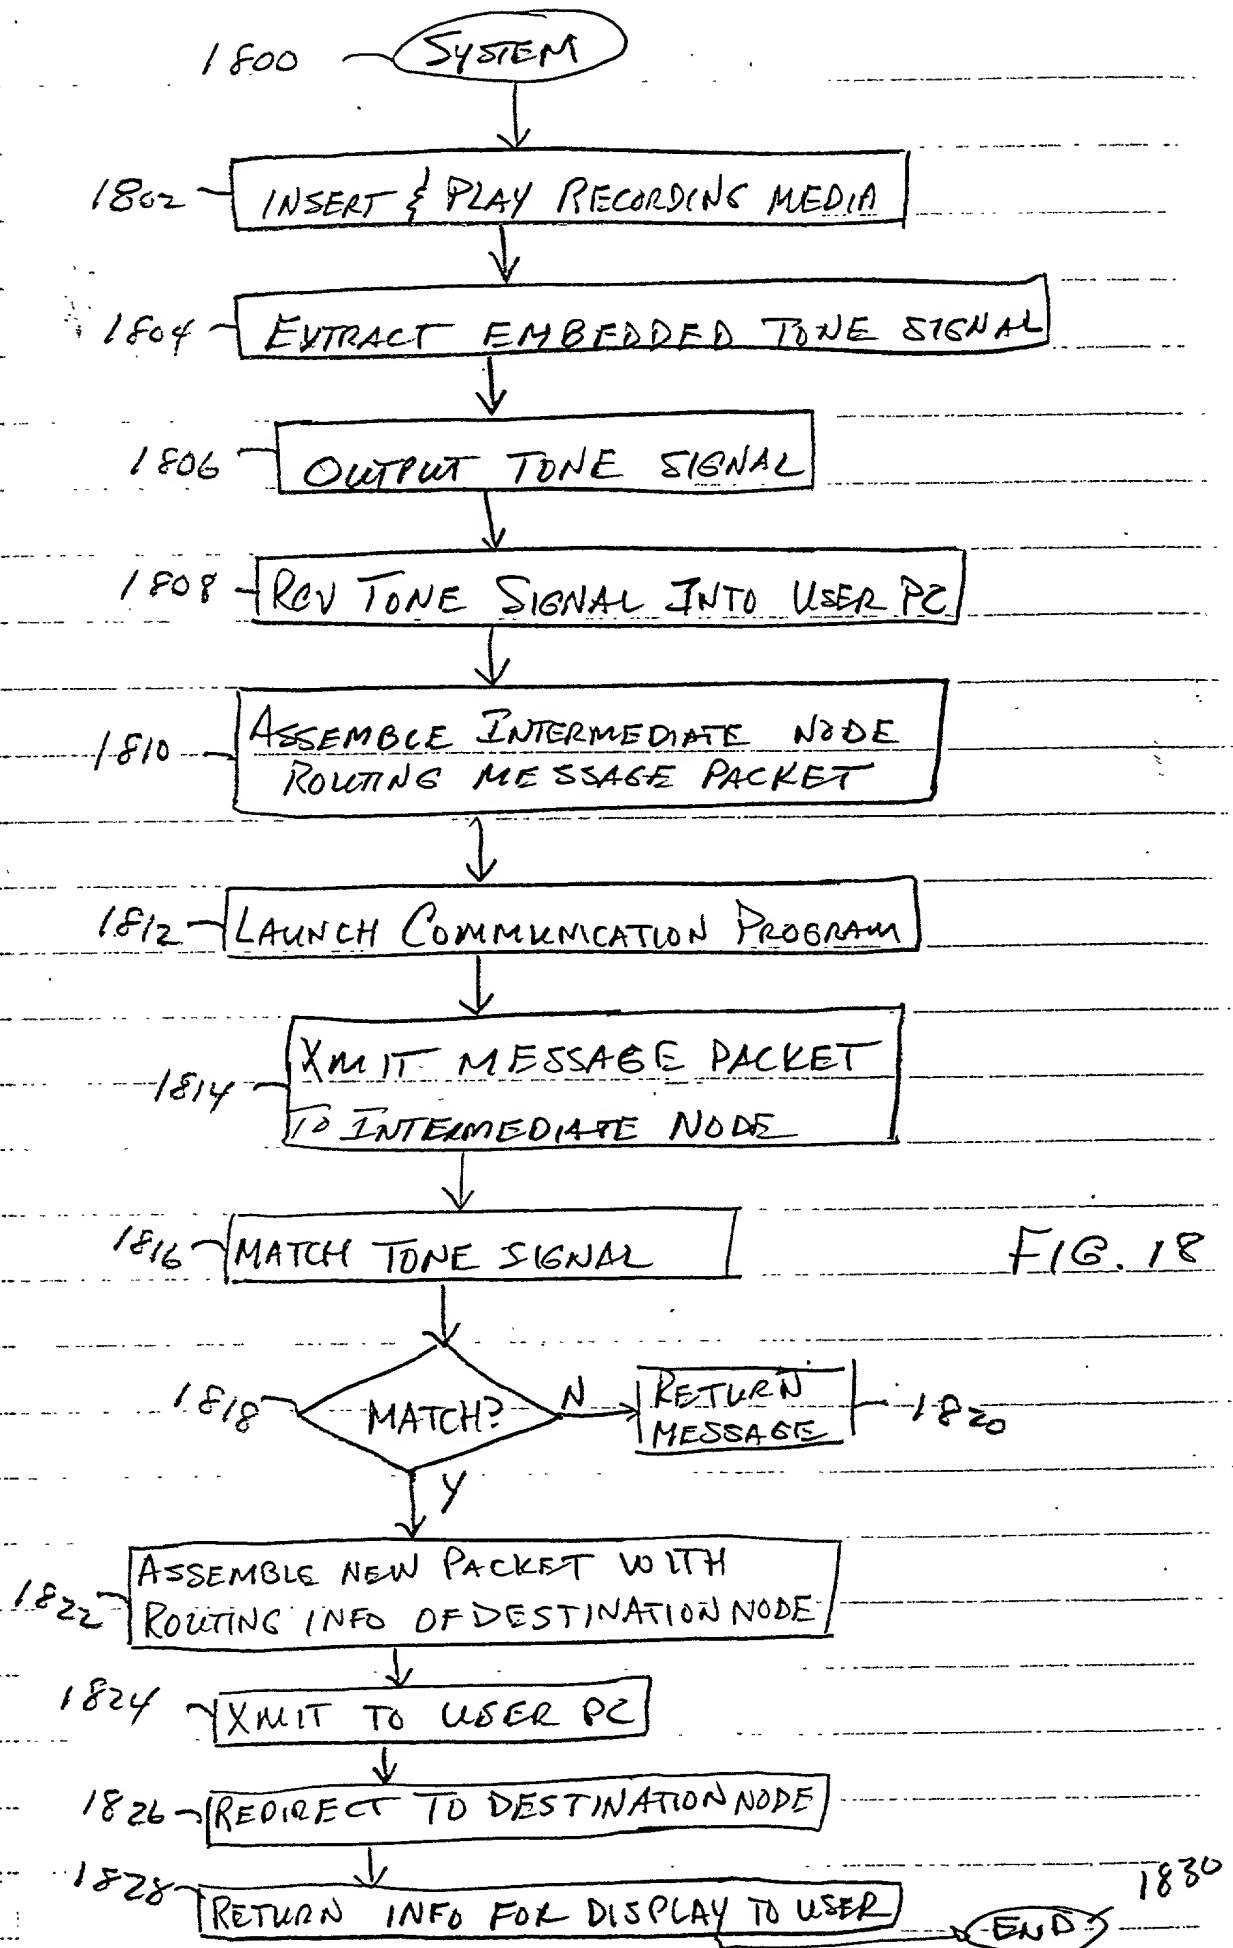 1800 SYSTEM
1802 INSERT & PLAY RECORDING MEDIA
1804 EXTRACT EMBEDDED TONE SIGNAL
1806 OUTPUT TONE SIGNAL
1808 RCV TONE SIGNAL INTO USER PC
ASSEMBLE INTERMEDIATE NODE
1810
ROUTING MESSAGE PACKET
1812 LAUNCH COMMUNICATION PROGRAM
XMIT MESSAGE PACKET
1814
TO INTERMEDIATE NODE
1816 MATCH TONE SIGNAL
FIG. 18
1818 MATCH? N
RETURN
MESSAGE
1820
Y
ASSEMBLE NEW PACKET WITH
1822
ROUTING INFO OF DESTINATION NODE
1824 XMIT TO USER PC
1826 REDIRECT TO DESTINATION NODE
1828 RETURN INFO FOR DISPLAY TO USER
1830
END